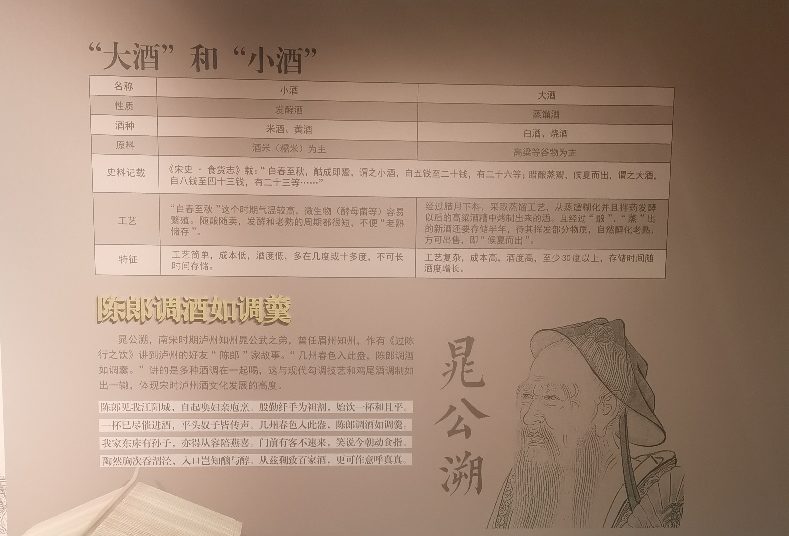 “大酒”和“小酒”
名称 小酒 大酒
性质 发酵酒 蒸馏酒
酒种 米酒、黄酒 白酒、烧酒
原料 酒米（糯米）为主 高粱等谷物为主
史料记载 《宋史·食货志》载：“自春至秋，酤成即鬻，谓之小酒，自五钱至三十钱，有二十六等；腊酿蒸鬻，候夏而出，谓之大酒，
自八钱至四十三钱，有二十三等……”
工艺 “自春至秋”这个时期气温较高，微生物（酵母菌等）容易
繁殖。随酿随卖，发酵和老熟的周期都很短，不便“老熟
储存”。
经过腊月下本，采取蒸馏工艺，从蒸煮糊化并且拌药发酵
以后的高粱酒糟中烤制出来的酒。且经过“酿”、“蒸”出
的新酒还要储存半年，待其挥发部分物质，自然醇化老熟，
方可出售，即“候夏而出”。
特征 工艺简单，成本低，酒度低，多在几度或十多度，不可长
时间存储。
工艺复杂，成本高，酒度高，至少30度以上，存储时间随
酒度增长。
陈郎调酒如调羹
晁公溯，南宋时期泸州知州晁公武之弟，曾任眉州知州，作有《过陈
行之饮》讲到泸州的好友“陈郎”家故事。“几州春色入此盎，陈郎调酒
如调羹。”讲的是多种酒调在一起喝，这与现代勾调技艺和鸡尾酒调制如
出一辙，体现宋时泸州酒文化发展的高度。
陈郎见我江阳城，自起唤妇亲庖烹。殷勤纤手为袒割，始饮一杯和且平。
一杯已尽催进酒，平头奴子皆传声。几州春色入此盎，陈郎调酒如调羹。
我家东床有孙子，亦得从容陪燕喜。门前有客不速来，笑说今朝动食指。
陶然胸次吞渭泾，入口岂知醨与醇。从兹利致百家酒，更可作意呼真真。
晁公溯